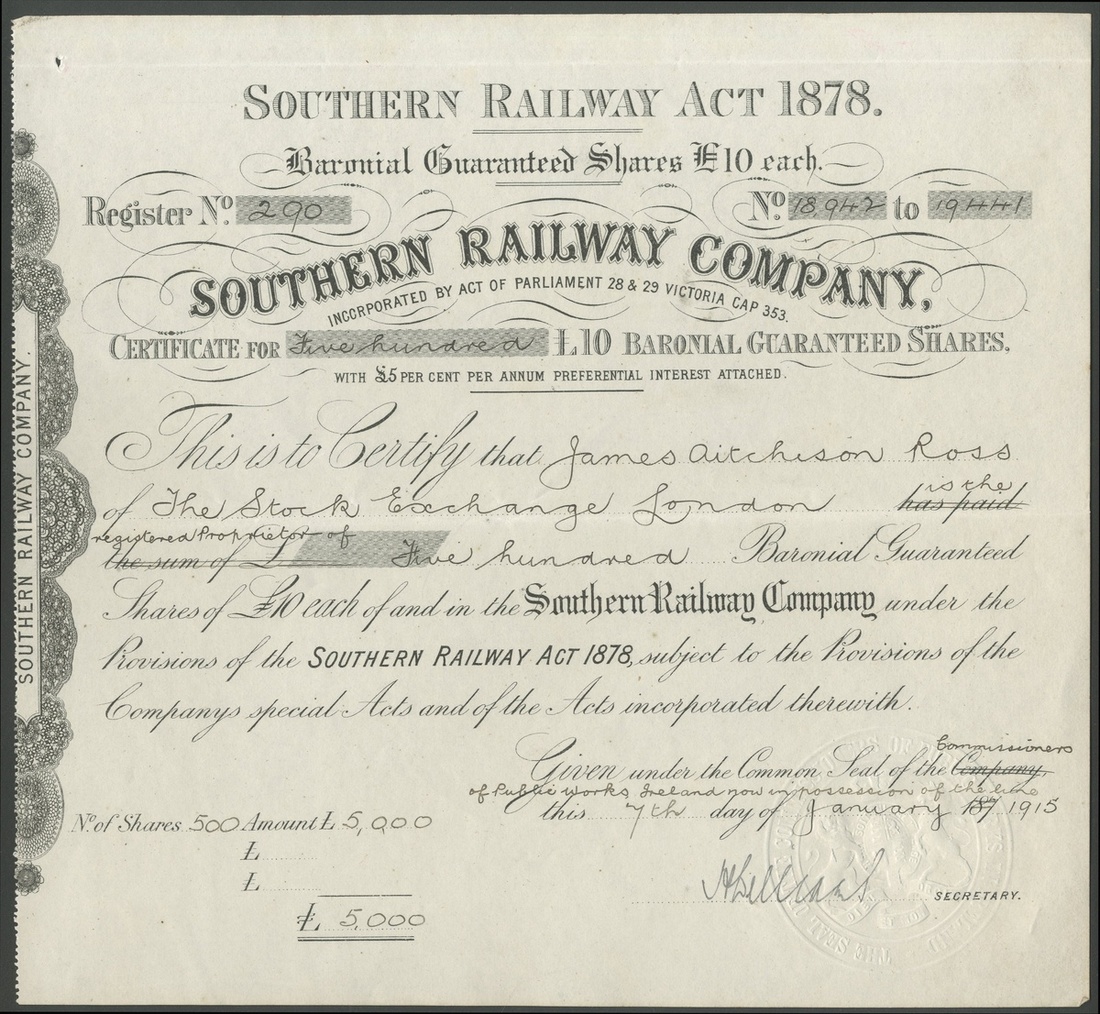 SOUTHERN RAILWAY ACT 1878.
Baronial Guaranteed Shares £10 each.
Register No. 290 No. 18,942 to 19441
SOUTHERN RAILWAY COMPANY,
INCORPORATED BY ACT OF PARLIAMENT 28 & 29 VICTORIA CAP 353.
CERTIFICATE FOR Five hundred £10 BARONIAL GUARANTEED SHARES.
WITH £5 PER CENT PER ANNUM PREFERENTIAL INTEREST ATTACHED.
This is to Certify that James Aitchison Ross
is the
of The Stock Exchange London has paid
registered Proprietor of
the sum of £ Five hundred Baronial Guaranteed
Shares of £10 each of and in the Southern Railway Company under the
Provisions of the SOUTHERN RAILWAY ACT 1878, subject to the Provisions of the
Companys special Acts and of the Acts incorporated therewith.
Commissioners
Given under the Common Seal of the Company
of Public Works Ireland now in possession of the line
this 7th day of January 187 1915
No. of Shares 500 Amount £ 5,000
£
£
SECRETARY.
£ 5,000
SOUTHERN RAILWAY COMPANY.